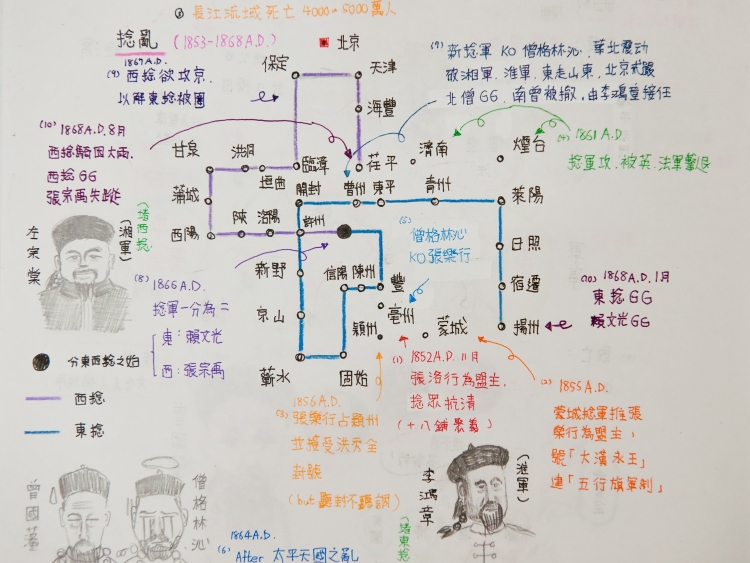 長江流域死亡 4000~5000萬人
捻亂 (1853-1868 A.D.)
北京
1867 A.D.
(9) 西捻欲攻京,
以解東捻被圍
保定
天津
海豐
(7) 新捻軍 KO 僧格林沁, 華北震动
破湘軍、淮軍, 東走山東, 北京戒嚴
北僧GG, 南曾被撤, 由李鴻章接任
(10) 1868 A.D. 8月
西捻騎困大雨,
西捻GG
張宗禹失蹤
甘泉
洪洞
臨漳
茌平
濟南
煙台
(4) 1861 A.D.
捻軍攻, 被英、法軍擊退
蒲城
垣曲
開封
曹州
東平
青州
萊陽
西陽
陝
洛陽
許州
(5)
僧格林沁
KO 張樂行
日照
(堵西捻)
(湘軍)
左宗棠
新野
信陽
陳州
豐
宿遷
(10) 1868 A.D. 1月
東捻GG
賴文光GG
(8) 1866 A.D.
捻軍一分為二
東:賴文光
西:張宗禹
京山
潁州
亳州
蒙城
揚州
分東西捻之始
西捻
東捻
蘄水
固始
(1) 1852 A.D. 11月
張洛行為盟主,
捻眾抗清
(十八鋪聚義)
(2) 1855 A.D.
蒙城捻軍推張
樂行為盟主,
號「大漢永王」
建「五行旗軍制」
1856 A.D.
(3) 張樂行占潁州
並接受洪秀全
封號
(but 聽封不聽調)
曾國藩
僧格林沁
(淮軍)
李鴻章
(堵東捻)
1864 A.D.
(6) After 太平天國之亂